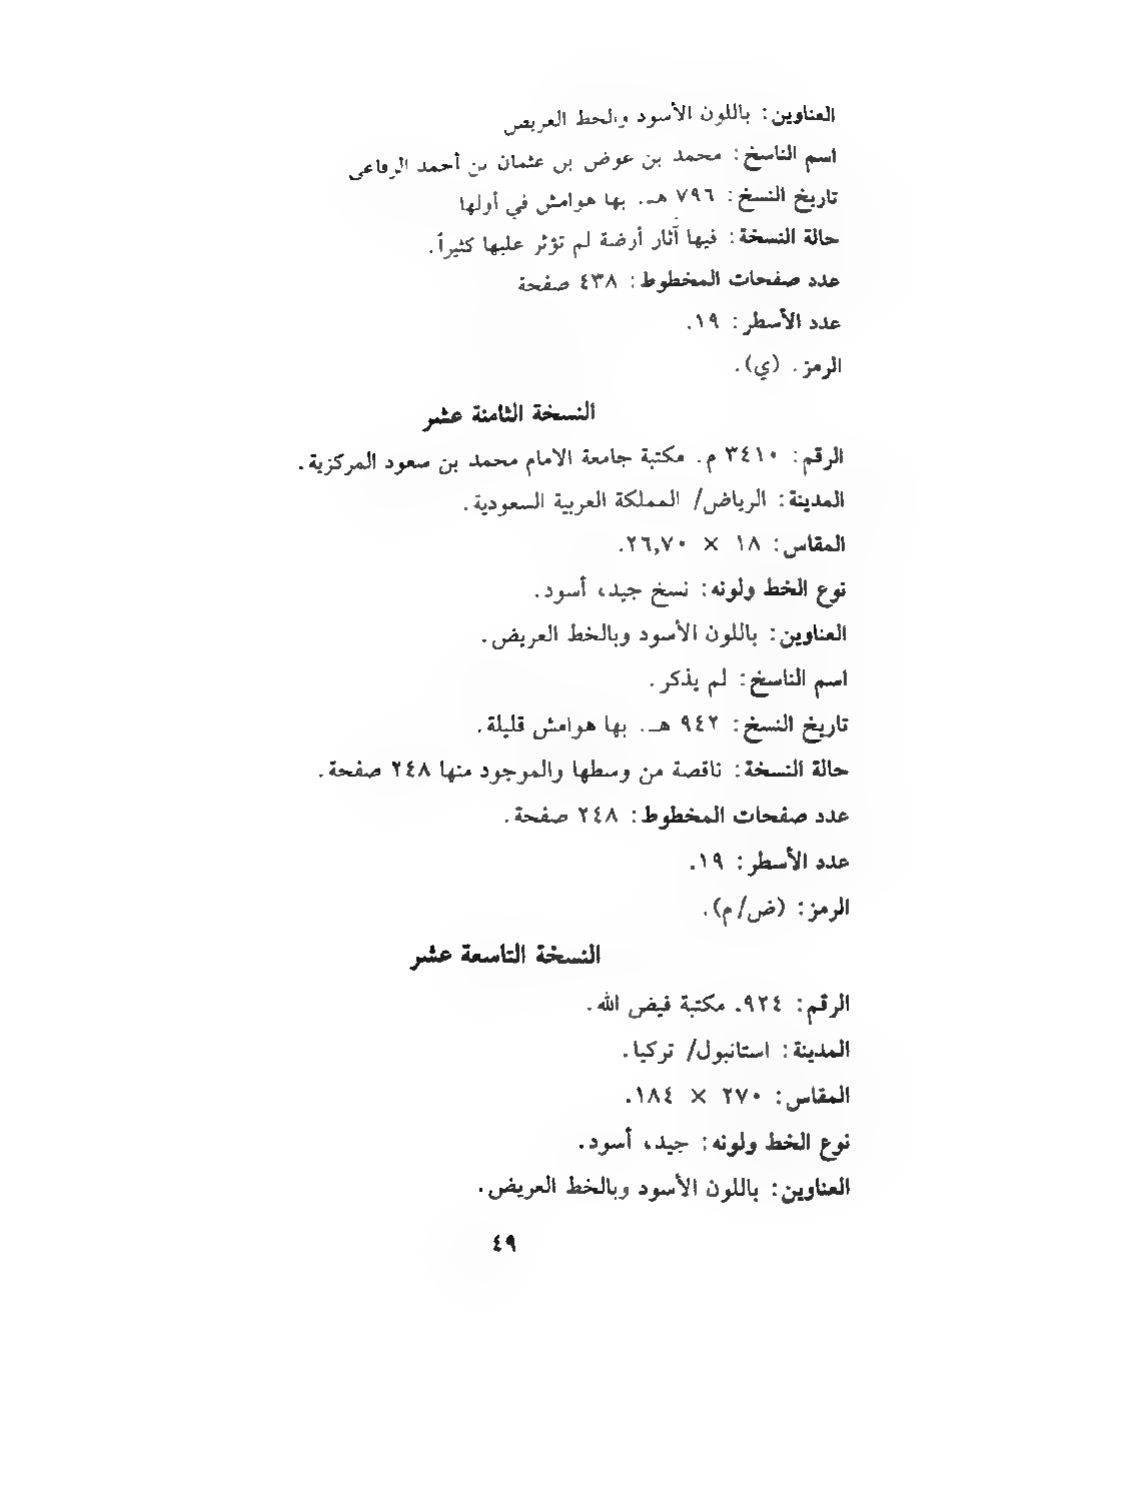 العناوين: باللون الأسود والخط العريض
اسم الناسخ: محمد بن عوض بن عثمان بن أحمد الرفاعي
تاريخ النسخ: ٧٩٦ هـ. بها هوامش في أولها
حالة النسخة: فيها آثار أرضة لم تؤثر عليها كثيراً.
عدد صفحات المخطوط: ٤٣٨ صفحة
عدد الأسطر: ١٩.
الرمز. (ي).
النسخة الثامنة عشر
الرقم: ٣٤١٠ م. مكتبة جامعة الامام محمد بن سعود المركزية.
المدينة: الرياض/ المملكة العربية السعودية.
المقاس: ١٨ × ٢٦,٧٠.
نوع الخط ولونه: نسخ جيد، أسود.
العناوين: باللون الأسود وبالخط العريض.
اسم الناسخ: لم يذكر.
تاريخ النسخ: ٩٤٢ هـ. بها هوامش قليلة.
حالة النسخة: ناقصة من وسطها والموجود منها ٢٤٨ صفحة.
عدد صفحات المخطوط: ٢٤٨ صفحة.
عدد الأسطر: ١٩.
الرمز: (ض/م).
النسخة التاسعة عشر
الرقم: ٩٢٤. مكتبة فيض الله.
المدينة: استانبول/ تركيا.
المقاس: ٢٧٠ × ١٨٤.
نوع الخط ولونه: جيد، أسود.
العناوين: باللون الأسود وبالخط العريض.
٤٩